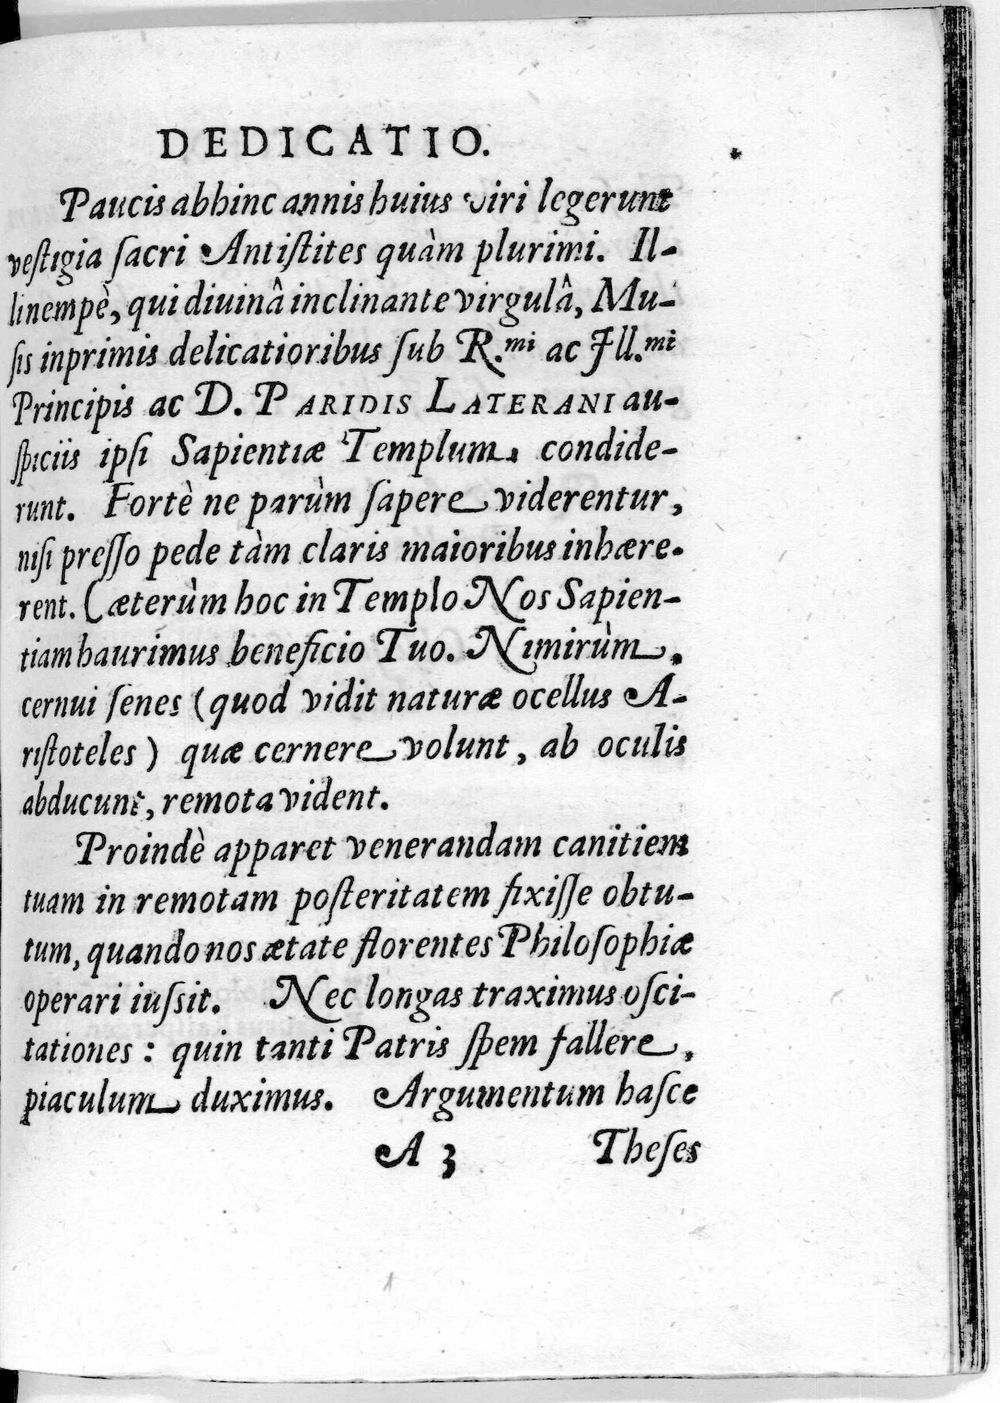 DEDICATIO.
Paucis abhinc annis huius viri legerunt
vestigia sacri Antistites quàm plurimi. Il-
li nempè, qui diuinâ inclinante virgulâ, Mu-
sis inprimis delicatioribus sub R.mi ac Ill.mi
Principis ac D. PARIDIS LATERANI au-
spiciis ipsi Sapientiæ Templum condide-
runt. Fortè ne parùm sapere viderentur,
nisi presso pede tàm claris maioribus inhære-
rent. Cæterùm hoc in Templo Nos Sapien-
tiam haurimus beneficio Tuo. Nimirùm,
cernui senes (quod vidit naturæ ocellus A-
ristoteles) quæ cernere volunt, ab oculis
abducunt, remota vident.
Proindè apparet venerandam canitiem
tuam in remotam posteritatem fixisse obtu-
tum, quando nos ætate florentes Philosophiæ
operari iussit. Nec longas traximus osci-
tationes: quin tanti Patris spem fallere,
piaculum duximus. Argumentum hasce
A 3 Theses